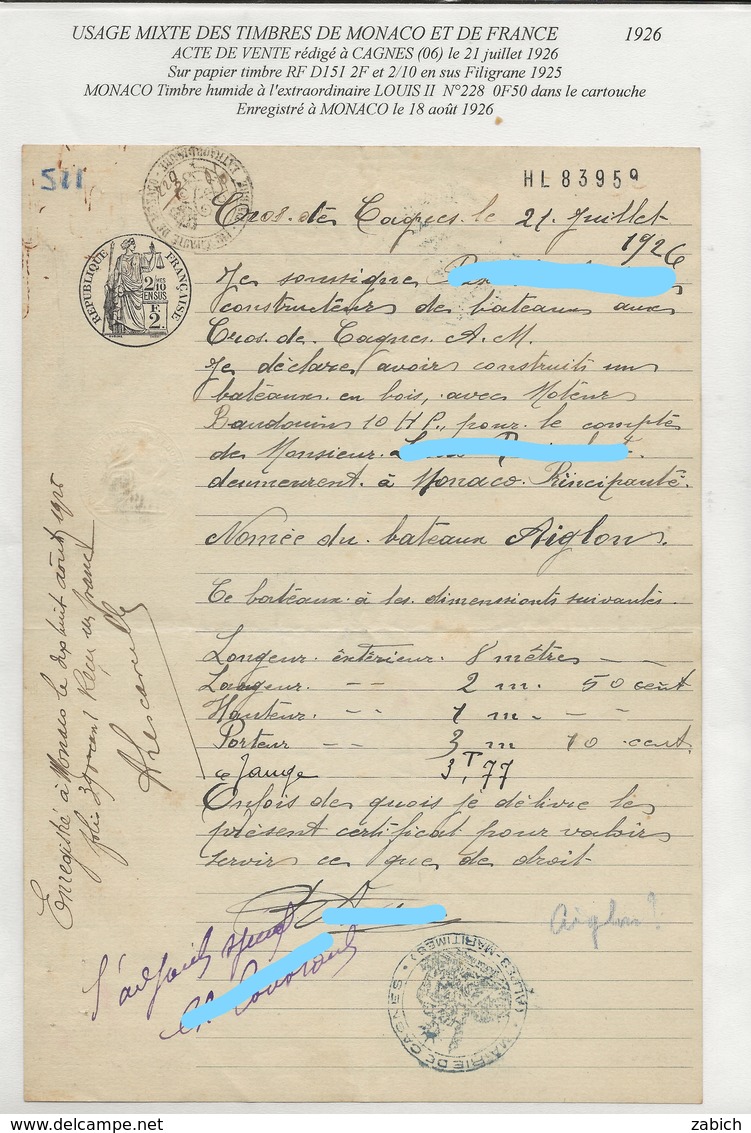 USAGE MIXTE DES TIMBRES DE MONACO ET DE FRANCE 1926
ACTE DE VENTE rédigé à CAGNES (06) le 21 juillet 1926
Sur papier timbre RF D151 2F et 2/10 en sus Filigrane 1925
MONACO Timbre humide à l'extraordinaire LOUIS II N°228 0F50 dans le cartouche
Enregistré à MONACO le 18 août 1926
511
HL 83959
Cros. de Cagnes. le 21. Juillet
1926
REPUBLIQUE FRANÇAISE
2/10 MES
EN SUS
F.
2.
Je soussigne
constructeur de bateaux aux
Cros. de. Cagnes. A. M.
Je déclare avoir construits un
bateaux en bois, avec Moteur
Baudouin 10 H.P., pour le compte
de Monsieur.
deumeurent. à Monaco. Principauté.
Nomée du. bateaux Aiglon.
Ce bateaux à les dimenssionts suivantes.
Longeur. extérieur. 8 mètres
Largeur. 2 m. 50 cent
Hauteur. 1 m.
Porteur 3 m 10 cent.
Jauge 3T,77
Enfois de quois je délivre le
présent certificat pour valoir
servir ce que de droit
Enregistré à Monaco le dix huit août 1926
folio 39 Reçu un franc
Aiglon?
MAIRIE DE CAGNES (ALPES-MARITIMES)
zabich